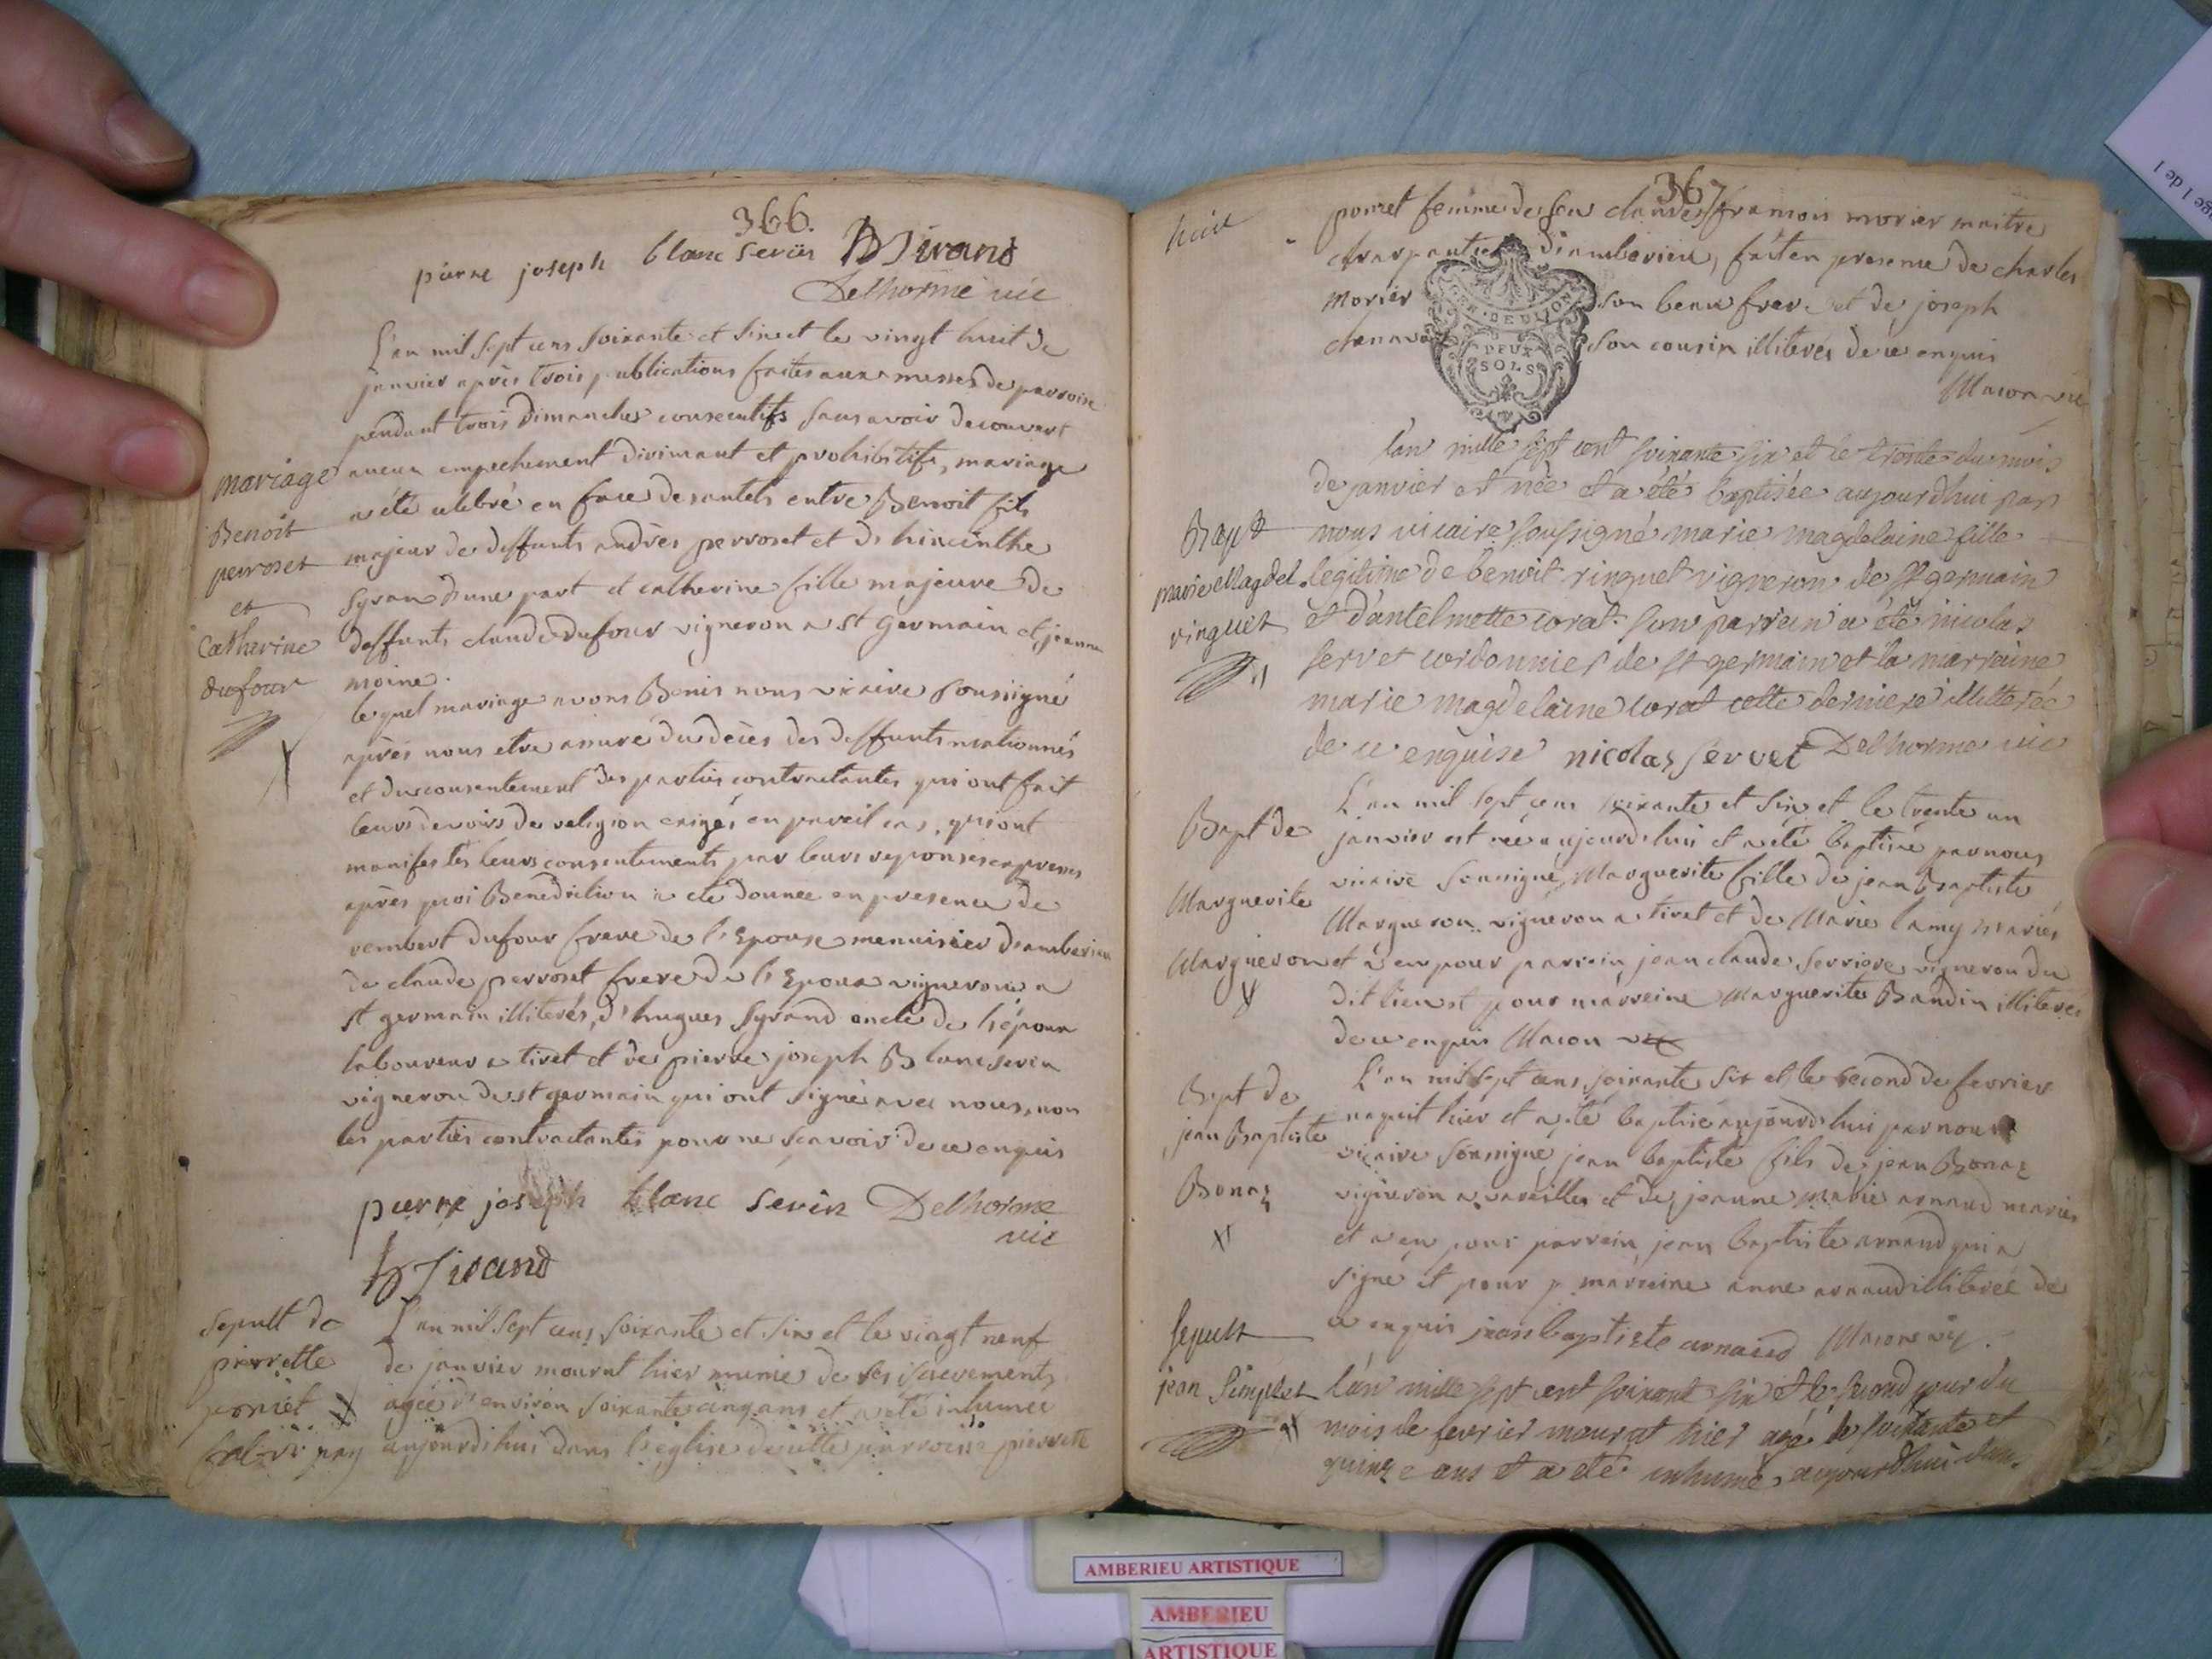 366.
pierre joseph blanc Serin
Delhorme vic
L'an mil sept cens soixante et six et le vingt huit de
janvier après trois publications faites aux messes de parroisse
pendant trois dimanches consecutifs sans avoir decouvert
aucun empechement dirimant et prohibitifs, mariage
a été celebré en face des autels entre Benoit fils
majeur de deffunts andrès perroset et d' hiacinthe
Syran d'une part et catherine fille majeure de
deffunts claude dufour vigneron a st Germain et jeanne
moine.
lequel mariage avons Benis nous vicaire soussigné
après nous etre assuré du deces des deffunts mentionnés
et du consentement des parties contractantes qui ont fait
leurs devoirs de religion exigés en pareil cas, qui ont
manifestés leurs consentements par leurs reponses expresses
après quoi Benediction a eté donnee en presence de
rembert dufour frere de l'Epouse menuisier d'amberieu
de claude perroset frere de l'Epoux vigneron a
st germain illiterés, d'hugues Syrand oncle de l'époux
laboureur a tiret et de pierre joseph Blanc serin
vigneron de st germain qui ont signé avec nous, non
les parties contractantes pour ne sçavoir de ce enquis
pierre joseph blanc Serin Delhorme
vic
mariage
Benoit
perroset
et
Catherine
dufour
Sepult de
pierrette
poncet
L'an mil sept cens soixante et six et le vingt neuf
de janvier mourut hier munie de ses sacrements
agée d'environ soixante cinq ans et a été inhumée
aujourdhui dans l'eglise de cette parroisse pierrette
367
poncet femme de feu claude françois morier maitre
charpentier d'amberieu, fait en presence de charles
morier son beau frere et de joseph
son cousin illiterés de ce enquis
Macon vic
GEN. DE DIJON
DEUX
SOLS
Bapt
marie Magdel.
ringuet
l'an mille sept cent soixante six et le trente du mois
de janvier est née et a été baptisée aujourdhui par
nous vicaire soussigné marie magdelaine fille
legitime de benoit ringuet vigneron de st germain
et d'antelmette corat. son parrein a été nicolas
servet cordonnier de st germain et la marraine
marie magdelaine corat cette derniere illitterée
de ce enquise nicolas servet Delhorme vic
Bapt de
Marguerite
Margueron
L'an mil sept cens soixante et six et le trente un
janvier est née aujourdhui et a eté baptisée par nous
vicaire soussigné Marguerite fille de jean Baptiste
Margueron vigneron a tiret et de Marie lamy mariés
et a eu pour parrein jean claude serriere vigneron du
dit lieu et pour marreine Marguerite Baudin illiterés
de ce enquis Macon vic
Bapt de
jean Baptiste
Bonaz
L'an mil sept cens soixante six et le second de fevrier
naquit hier et a eté baptisé aujourdhui par nous
vicaire soussigné jean baptiste fils de jean Bonaz
vigneron a vareilles et de jeanne marie arnaud mariés
et a eu pour parrein jean baptiste arnaud qui a
signé et pour marreine anne arnaud illiterée de
ce enquis jean baptiste arnaud Macon vic.
Sepult
jean Simplet
l'an mille sept cent soixante six et le second jour du
mois de fevrier mourut hier agé de soixante et
quinze ans et a eté inhumé aujourdhui dan.
AMBERIEU ARTISTIQUE
AMBERIEU
ARTISTIQUE